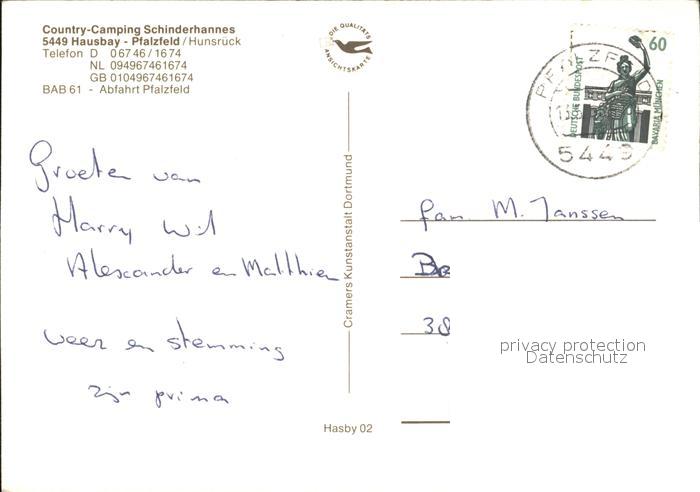 Country-Camping Schinderhannes
5449 Hausbay - Pfalzfeld / Hunsrück
Telefon D 0 67 46 / 16 74
NL 094967461674
GB 0104967461674
BAB 61 - Abfahrt Pfalzfeld
DIE QUALITÄTS
ANSICHTSKARTE
60
DEUTSCHE BUNDESPOST
BAVARIA MÜNCHEN
5449
Groeten van
Harry Wil
Alexander en Matthien
weer en stemming
zijn prima
Cramers Kunstanstalt Dortmund
Hasby 02
fam. M. Janssen
38
privacy protection
Datenschutz